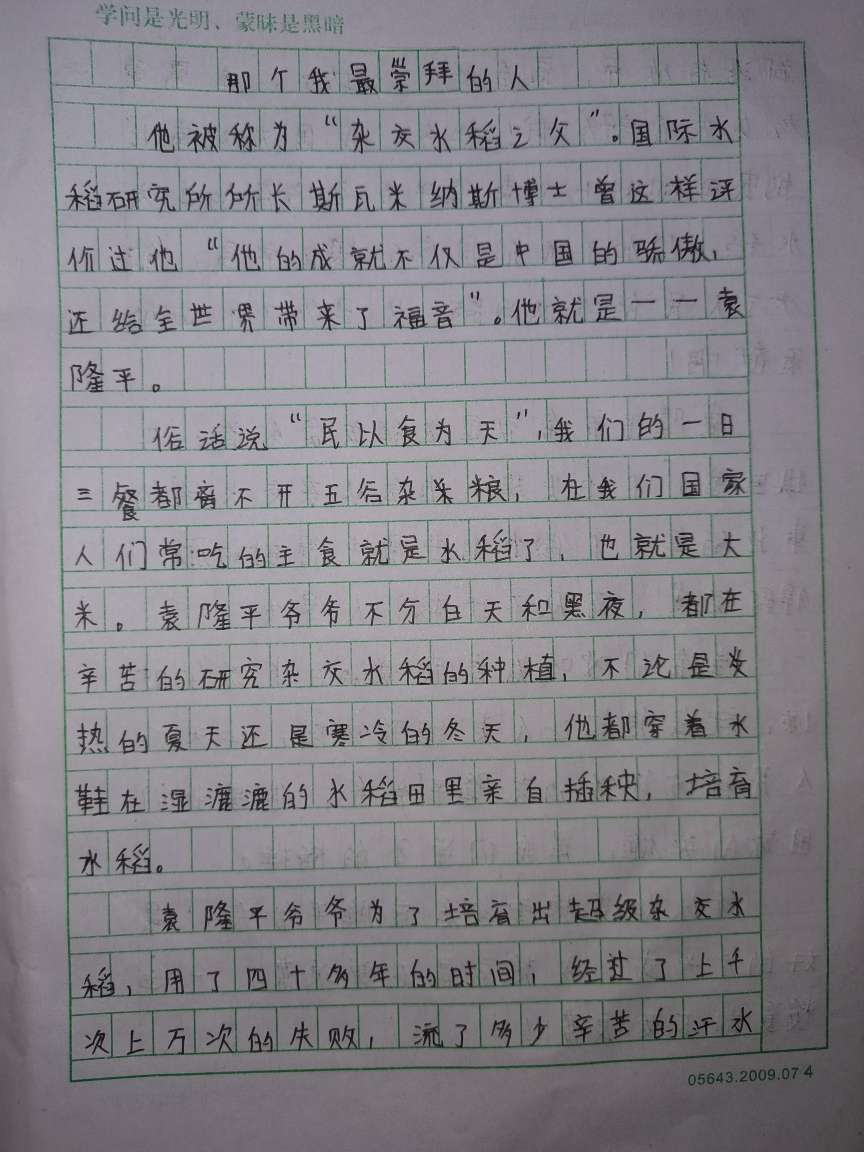 学问是光明、蒙昧是黑暗
那个我最崇拜的人
他被称为“杂交水稻之父”。国际水
稻研究所所长斯瓦米纳斯博士曾这样评
价过他“他的成就不仅是中国的骄傲，
还给全世界带来了福音”。他就是一一袁
隆平。
俗话说“民以食为天”，我们的一日
三餐都离不开五谷杂粮，在我们国家
人们常吃的主食就是水稻了，也就是大
米。袁隆平爷爷不分白天和黑夜，都在
辛苦的研究杂交水稻的种植，不论是炎
热的夏天还是寒冷的冬天，他都穿着水
鞋在湿漉漉的水稻田里亲自插秧，培育
水稻。
袁隆平爷爷为了培育出超级杂交水
稻，用了四十多年的时间，经过了上千
次上万次的失败，流了多少辛苦的汗水
05643.2009.07 4